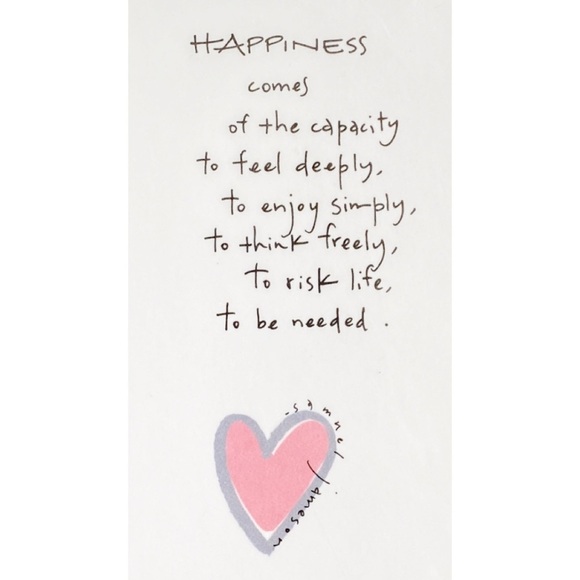 HAPPINESS
comes
of the capacity
to feel deeply,
to enjoy simply,
to think freely,
to risk life,
to be needed.
-samuel jameson